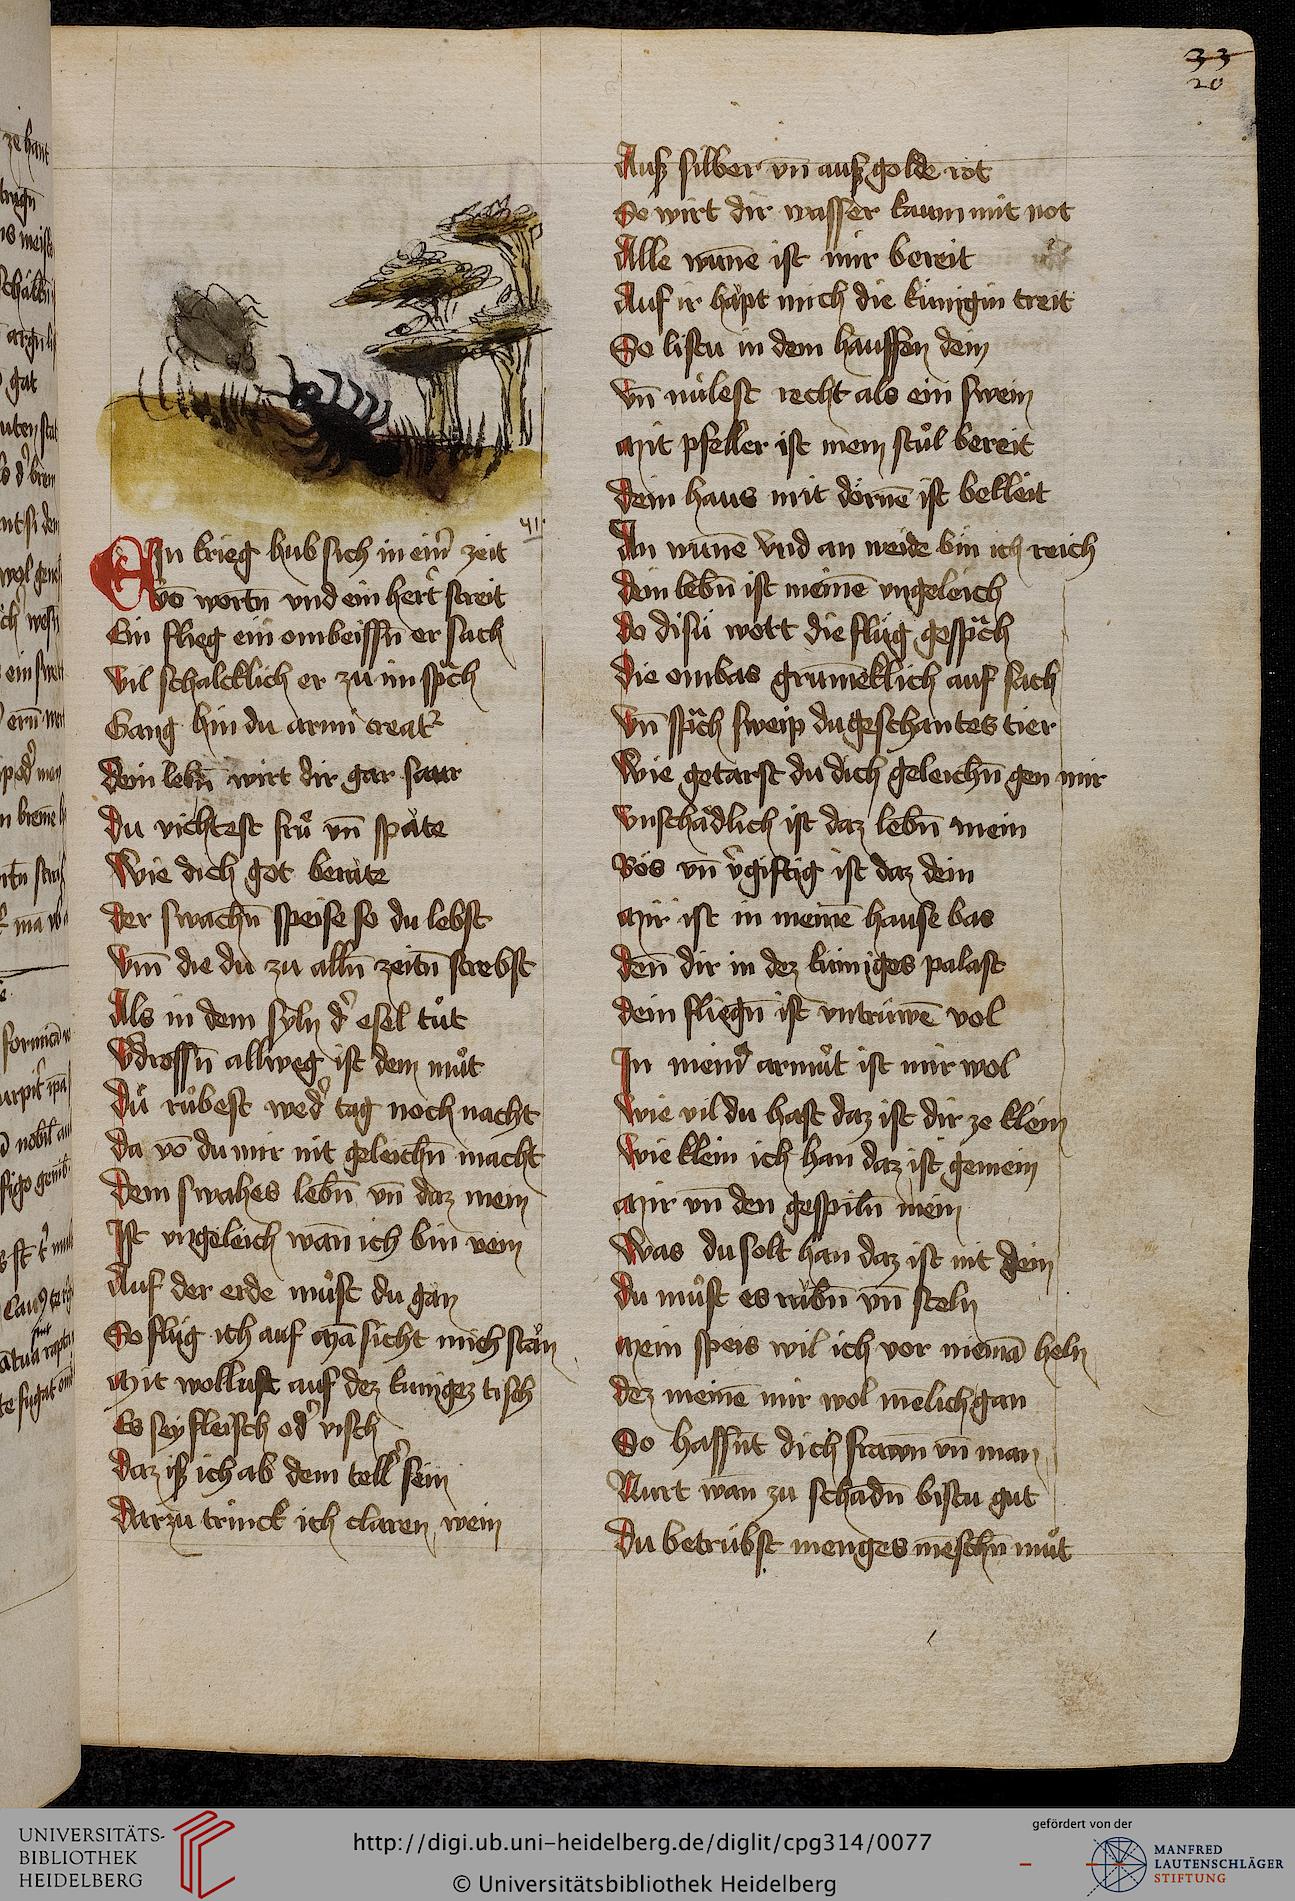 33
20
41.
EIn krieg hub sich in eim̄ zeit
Vō wortn̄ vnd ein hert streit
Ein flieg ein ombeissn̄ er sach
Vil schalcklich er zu im sp͛ch
Gang hin du armi creat͛
Dein lebn̄ wirt dir gar saur
Du vichtest frů vn̄ späte
Wie dich got berate
Der swachn̄ speise so du lebst
Vm̄ die du zu alln̄ zeitn̄ strebst
Als in dem syln d͛ esel tůt
V͛drossn̄ allweg ist dein můt
Du růbest wed͛ tag noch nacht
Da vō du mir nit geleichn̄ macht
Dein swahes lebn̄ vn̄ daz mein
Ist vngeleich wān ich bin vein
Auf der erde můst du gān
So flüg ich auf mā sicht mich stān
Mit wollust auf dez kunigez tisch
Es sey fleisch od͛ visch
Daz iß ich ab dem tell͛ sein
Darzu trinck ich claren wein
Auß silber vn̄ auß golde rot
So wirt dir wasser kaum mit not
Alle wūne ist mir bereit
Auf ir hapt mich die künigin treit
So listu in dem hauffen dein
Vn̄ mülest recht als ein swein
Mit pfeller ist mein stůl bereit
Dein haus mit dörnē ist bekleit
An wūne vnd an weide bin ich reich
Dein lebn̄ ist meinē vngeleich
Do disü wott die flüg gesp͛ch
Die ombas grūmeklich auf sach
Vn̄ sp͛ch sweip du geschantes tier
Wie getarst du dich geleichn̄ gen mir
Vnschädlich ist daz lebn̄ mein
Bös vn̄ v͛giftig ist daz dein
Mir ist in meinē hause bas
Den̄ dir in dez kuniges palast
Dein fliegn̄ ist vntrüwē vol
In mein͛ armůt ist mir wol
Wie vil du hast daz ist dir ze klein
Wie klein ich han daz ist gemein
Mir vn̄ den gespiln̄ mein
Was du solt han daz ist nit dein
Du můst es räbn̄ vn̄ steln
Mein speis wil ich vor niemā heln
Dez meinē mir wol melich gan
So hassn̄t dich frawn̄ vn̄ man
Nurt wān zu schadn̄ bistu gut
Du betrübst menges mēschn̄ můt
UNIVERSITÄTS-
BIBLIOTHEK
HEIDELBERG
http://digi.ub.uni-heidelberg.de/diglit/cpg314/0077
© Universitätsbibliothek Heidelberg
gefördert von der
MANFRED
LAUTENSCHLÄGER
STIFTUNG